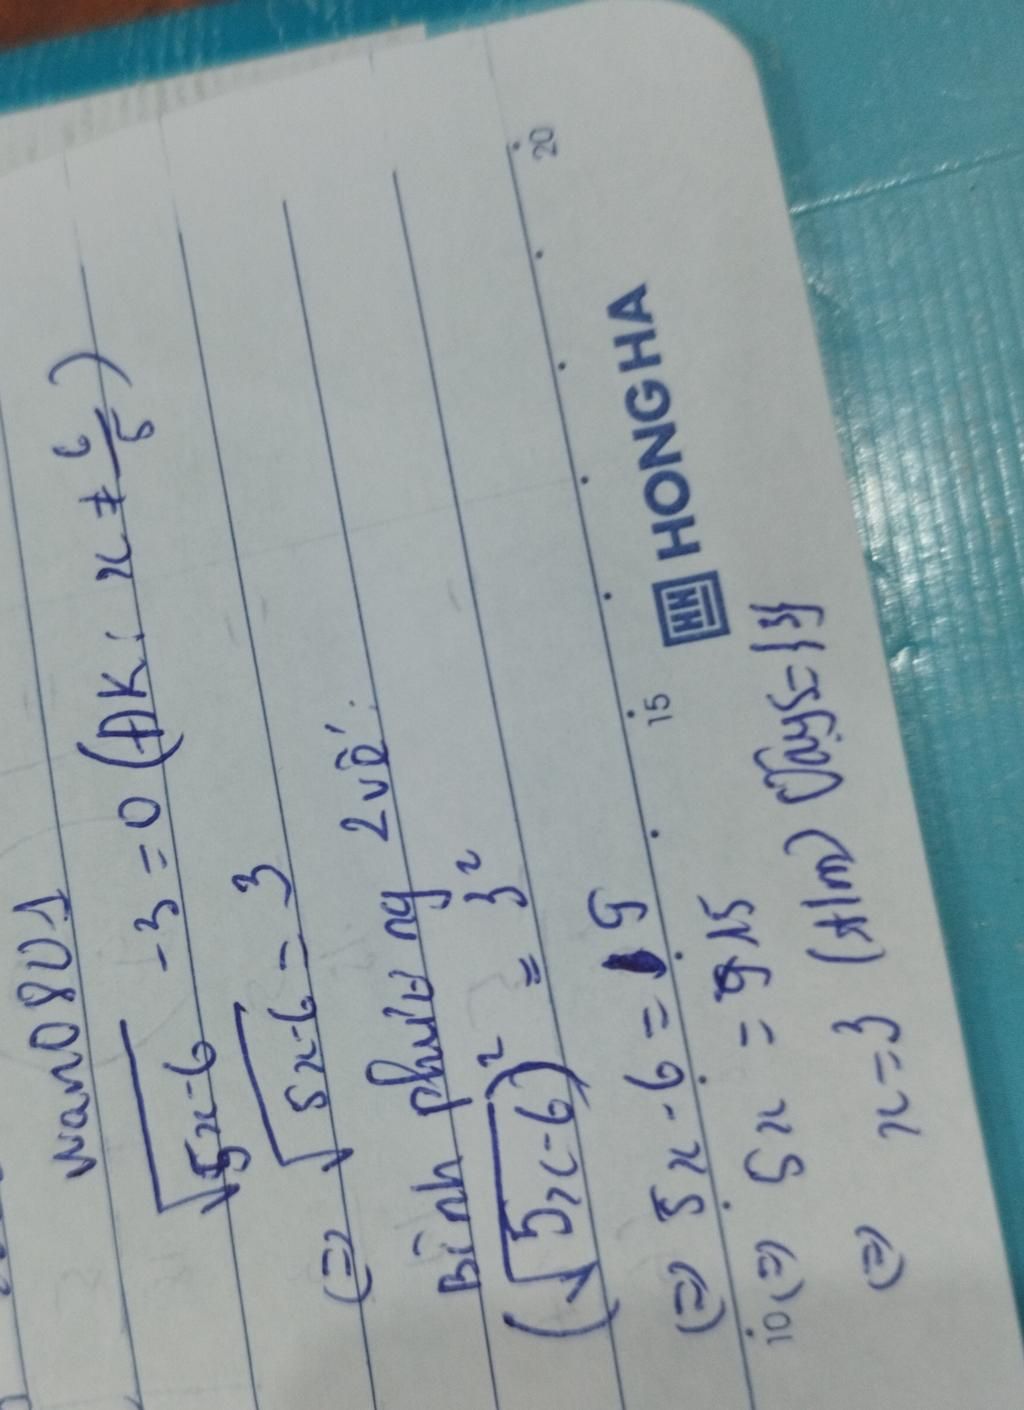 wano8U1
√5x-6 -3=0 (ĐK: x ≠ 6/5)
(=) √5x-6 = 3
Bình phương 2 vế:
(√5x-6)² = 3²
(=) 5x-6=9
(=) 5x = 15
(=) x=3 (t/m) Vậy S={3}
10 15 20
HONG HA